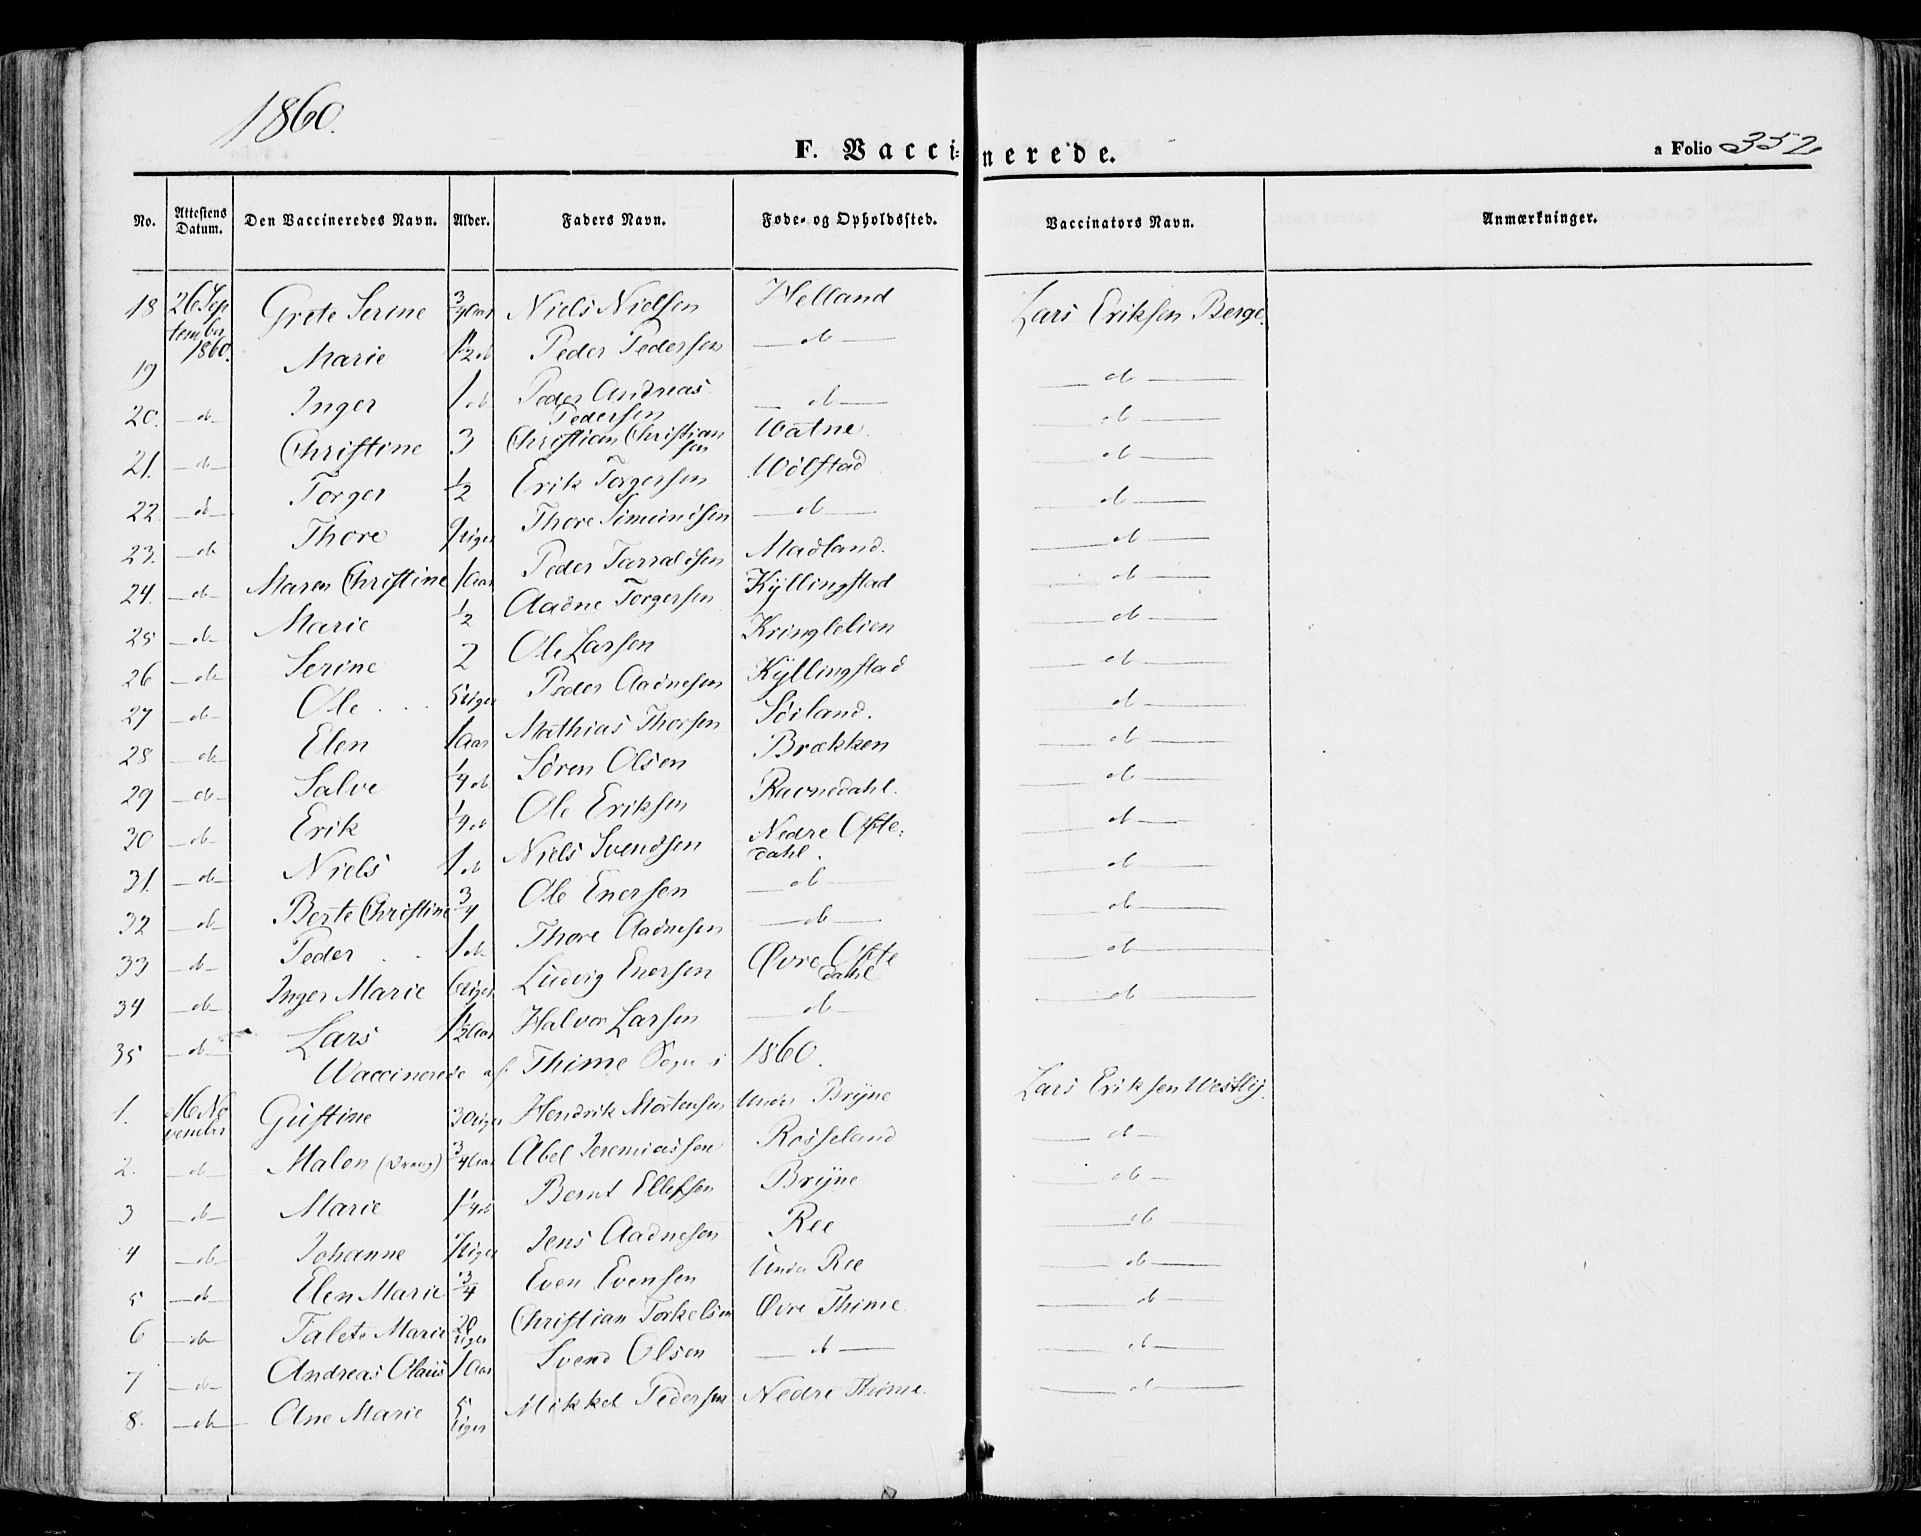 1860.
F. Vaccinerede.
a Folio 352
No. Attestens Datum. Den Vaccineredes Navn. Alder. Faders Navn. Føde- og Opholdssted. Vaccinators Navn. Anmærkninger.
18 26 September 1860. Grete Serine 3/4 Aar Niels Nielsen Helland Lars Eriksen Berge.
19 Marie 1 1/2 do Peder Pedersen —do— —do—
20. —do— Inger 1 do Peder Andreas Pedersen —do— —do—
21. —do— Christine 3 Christian Christiansen Watne. —do—
22. —do— Torger 1/2 Erik Torgersen Wølstad —do—
23. —do— Thore 9 Uger Thore Simundsen —do— —do—
24. —do— Maren Christine 1 Aar Peder Tarraldsen Madland. —do—
25 —do— Marie 1/2 Aadne Torgersen Kyllingstad —do—
26 —do— Serine 2 Ole Larsen Kringlelien —do—
27 —do— Ole 5 Uger Peder Aadnesen Kyllingstad —do—
28 —do— Elen 1 Aar Mathias Thorsen Søiland. —do—
29 —do— Salve 1/4 do Søren Olsen Brækken —do—
30 —do— Erik 1/4 do Ole Eriksen Ravnedahl. —do—
31. —do— Niels 1 do Niels Svendsen Nedre Ofte: dahl. —do—
32 —do— Berte Christine 3/4 Ole Enersen —do— —do—
33 —do— Peder 1 do Thore Aadnesen —do— —do—
34 —do— Inger Marie 6 Uger Ludvig Enersen Øvre Ofte dahl —do—
35 —do— Lars 1 1/2 Aar Halvor Larsen —do—
Waccinerede af Thime Sogn i 1860.
1. 16 November Gustine 30 Uger Hendrik Mortensen Under Bryne Lars Eriksen Westly.
2. —do— Malen 3/4 Aar Abel Jeremiassen Rosseland —do—
3 —do— Marie 1 1/4 do Bernt Ellefsen Bryne —do—
4 —do— Johanne Uger Jens Aadnesen Ree —do—
5 —do— Elen Marie 3/4 Even Evensen Under Ree —do—
6 —do— Talete Marie 20 Uger Christian Torkelsen Øvre Thime. —do—
7 —do— Andreas Olaus 1 Aar Svend Olsen —do— —do—
8. —do— Ane Marie 5 Uger Mikkel Pedersen Nedre Thime. —do—